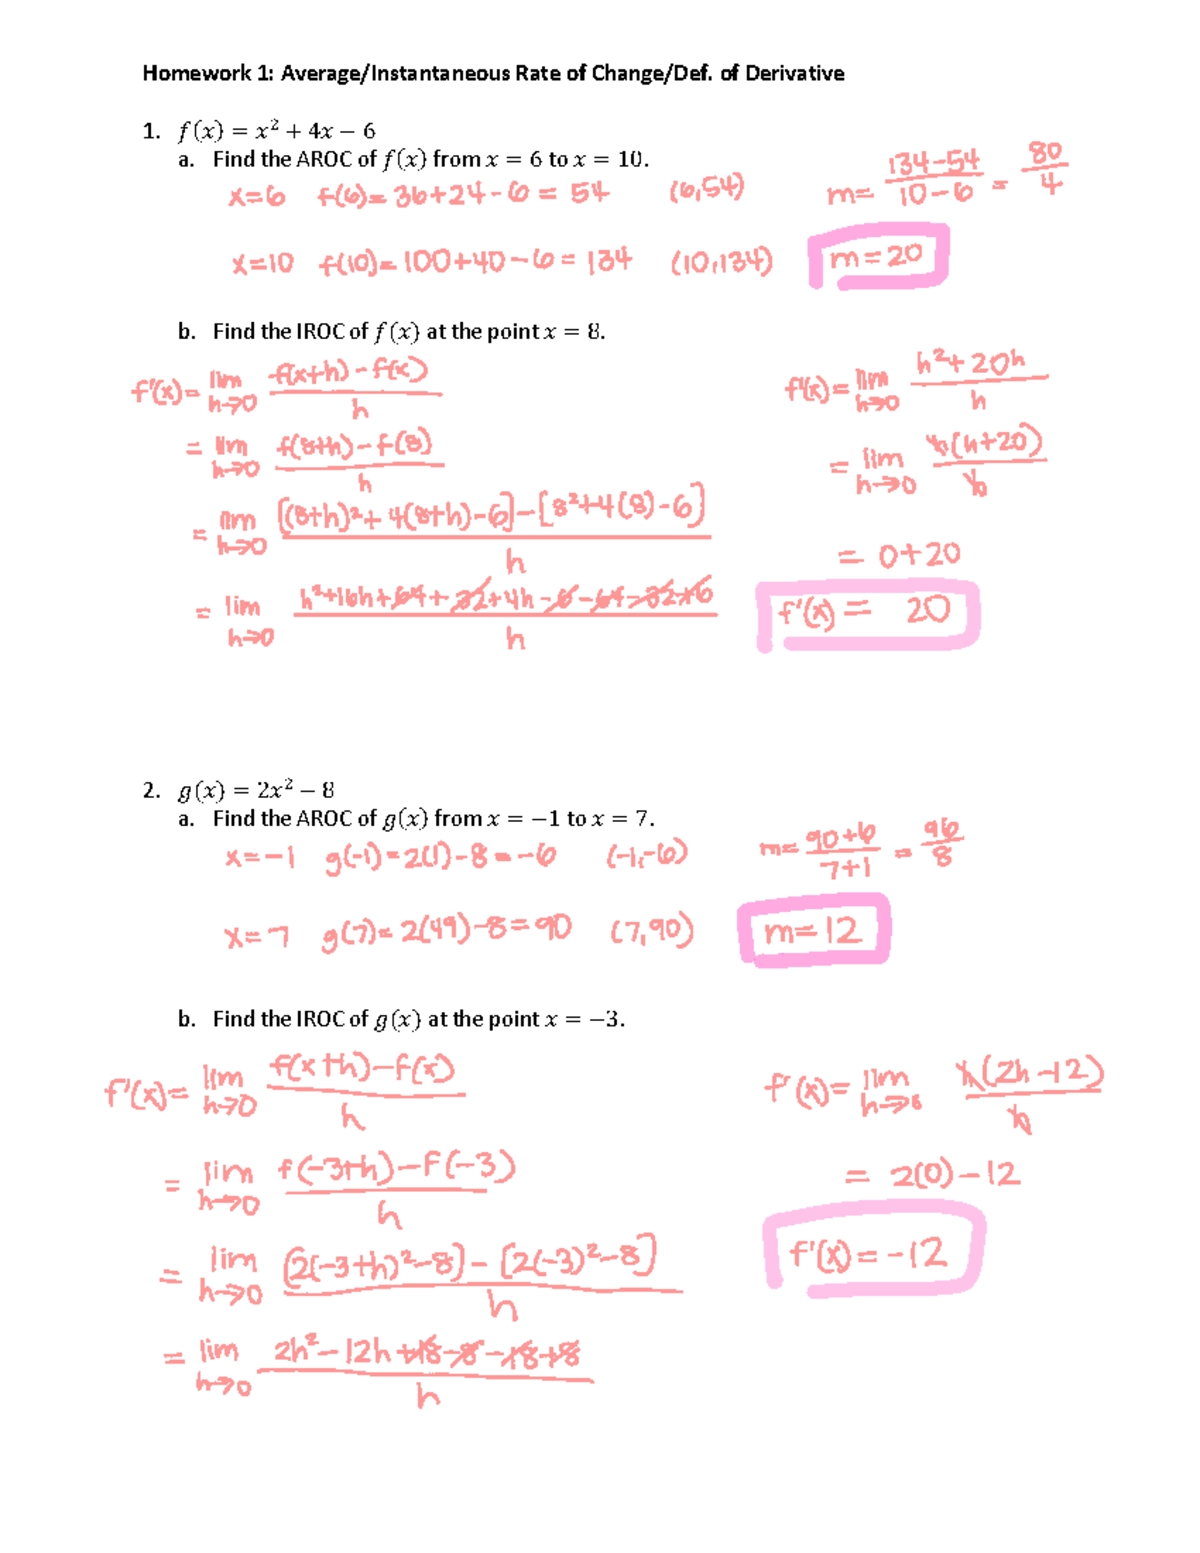 Homework 1: Average/Instantaneous Rate of Change/Def. of Derivative
1. f(x) = x² + 4x − 6
a. Find the AROC of f(x) from x = 6 to x = 10.
x=6 f(6)= 36+24-6 = 54 (6,54) m= 134-54 / 10-6 = 80 / 4
x=10 f(10)= 100+40-6 = 134 (10,134) m=20
b. Find the IROC of f(x) at the point x = 8.
f'(x)= lim h→0 f(x+h)-f(x) / h
= lim h→0 f(8+h)-f(8) / h
= lim h→0 [(8+h)²+4(8+h)-6]-[8²+4(8)-6] / h
= lim h→0 h²+16h+64+32+4h-6-64-32+6 / h
f'(x)= lim h→0 h²+20h / h
= lim h→0 h(h+20) / h
= 0+20
f'(x) = 20
2. g(x) = 2x² − 8
a. Find the AROC of g(x) from x = −1 to x = 7.
x=-1 g(-1)=2(1)-8=-6 (-1,-6) m= 90+6 / 7+1 = 96 / 8
x=7 g(7)= 2(49)-8=90 (7,90) m=12
b. Find the IROC of g(x) at the point x = −3.
f'(x)= lim h→0 f(x+h)-f(x) / h
= lim h→0 f(-3+h)-f(-3) / h
= lim h→0 [2(-3+h)²-8]-[2(-3)²-8] / h
= lim h→0 2h²-12h+18-8-18+8 / h
f'(x)= lim h→0 h(2h-12) / h
= 2(0)-12
f'(x)=-12